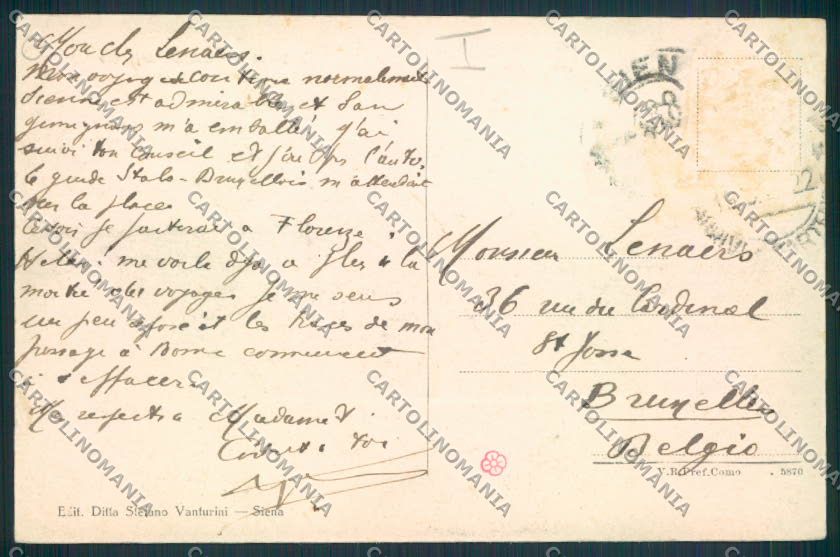 Mon cher Lenaers.
Mon voyage continue normalement
Sienne est admirable et San
gimignano m'a emballé j'ai
suivi ton conseil et j'ai pris l'auto.
le guide Italo-Bruxellois m'attendait
sur la place
Ce soir je partirai a Florence.
Helas! me voila déja a la
moitié des voyages je me sens
un peu reposé et les traces de mon
passage à Rome commencent
à s'effacer.
Mes respects a Madame V.
Cordt a toi
I
SIENA
Monsieur Lenaers
36 rue du Cardinal
St Josse
Bruxelles
Belgio
V.B. Pref. Como . 5870
Edit. Ditta Stefano Vanturini — Siena
CARTOLINOMANIA